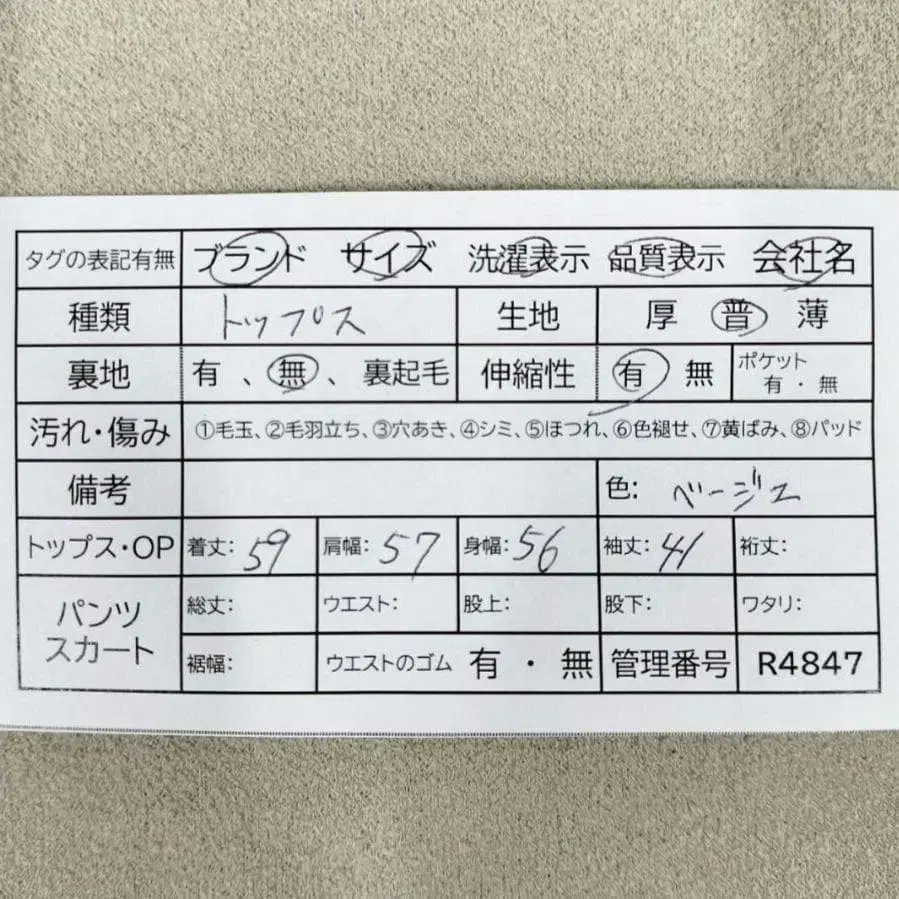 タグの表記有無 ブランド サイズ 洗濯表示 品質表示 会社名
種類 トップス 生地 厚 普 薄
裏地 有 、無 、裏起毛 伸縮性 有 無 ポケット 有・無
汚れ・傷み ①毛玉、②毛羽立ち、③穴あき、④シミ、⑤ほつれ、⑥色褪せ、⑦黄ばみ、⑧パッド
備考 色: ベージュ
トップス・OP 着丈: 59 肩幅: 57 身幅: 56 袖丈: 41 裄丈:
パンツ スカート 総丈: ウエスト: 股上: 股下: ワタリ:
裾幅: ウエストのゴム 有・無 管理番号 R4847